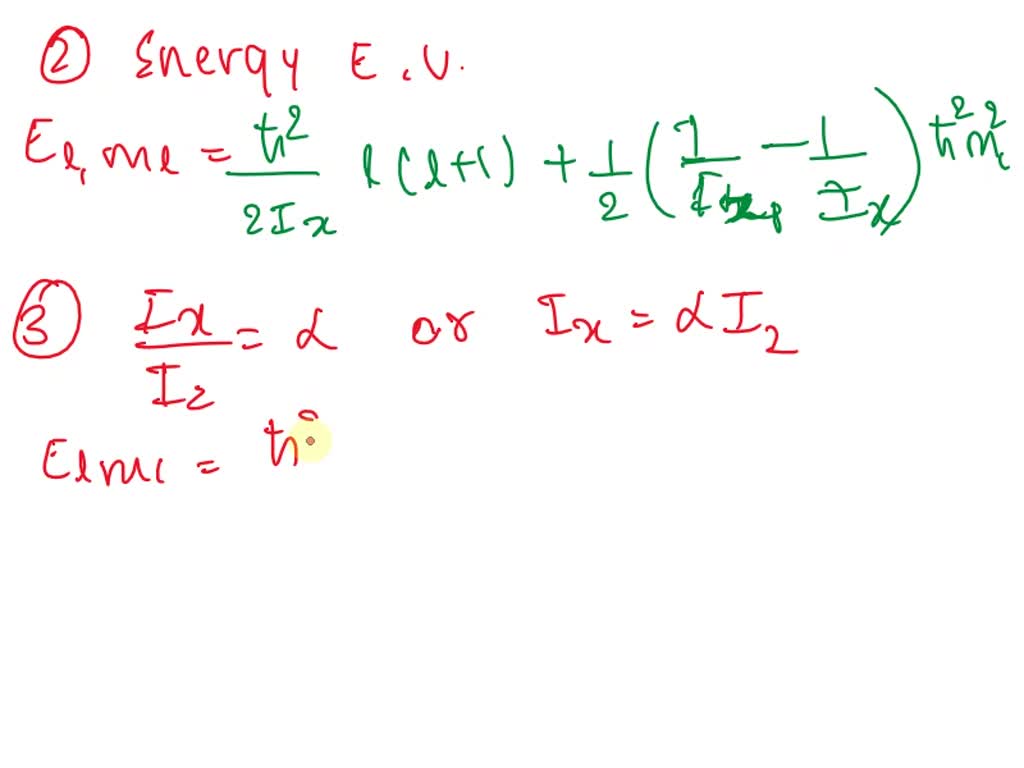 ② Energy E.V.
E_{l, ml} = ħ²/2Ix l(l+1) + 1/2 (1/I - 1/Ix) ħ²m_l²
③ Ix/Iz = α or Ix = αIz
E_{lml} = ħ